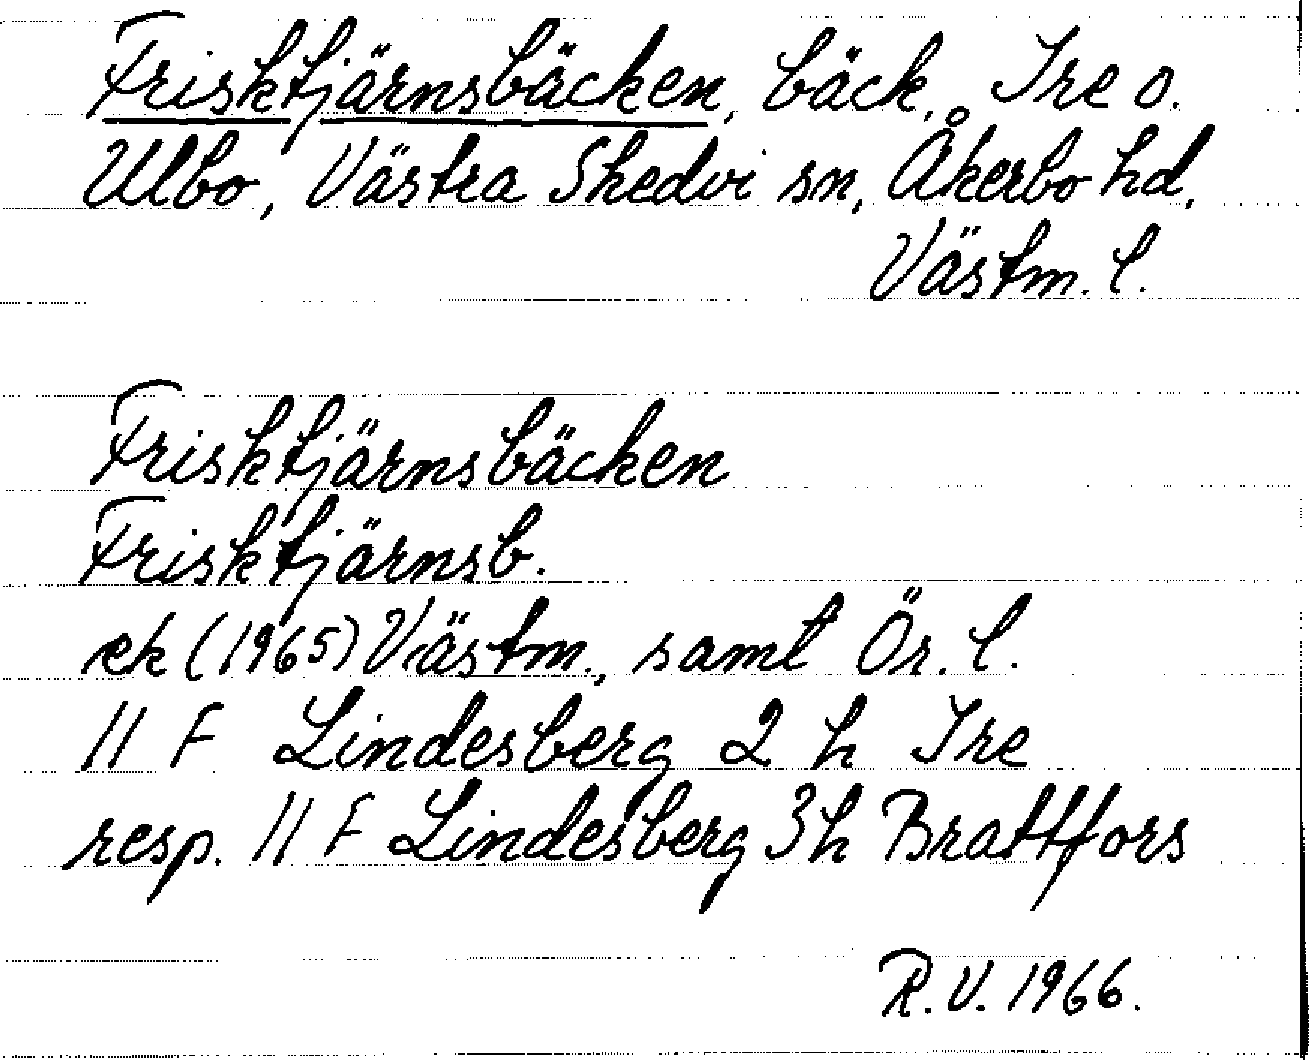 Frisktjärnsbäcken, bäck, Ire o.
Ulbo, Västra Skedvi sn, Åkerbo hd,
Västm. l.
Frisktjärnsbäcken
Frisktjärnsb.
ek (1965) Västm., samt Ör. l.
11 F Lindesberg 2 h Ire
resp. 11 F Lindesberg 3h Brattfors
R.V. 1966.